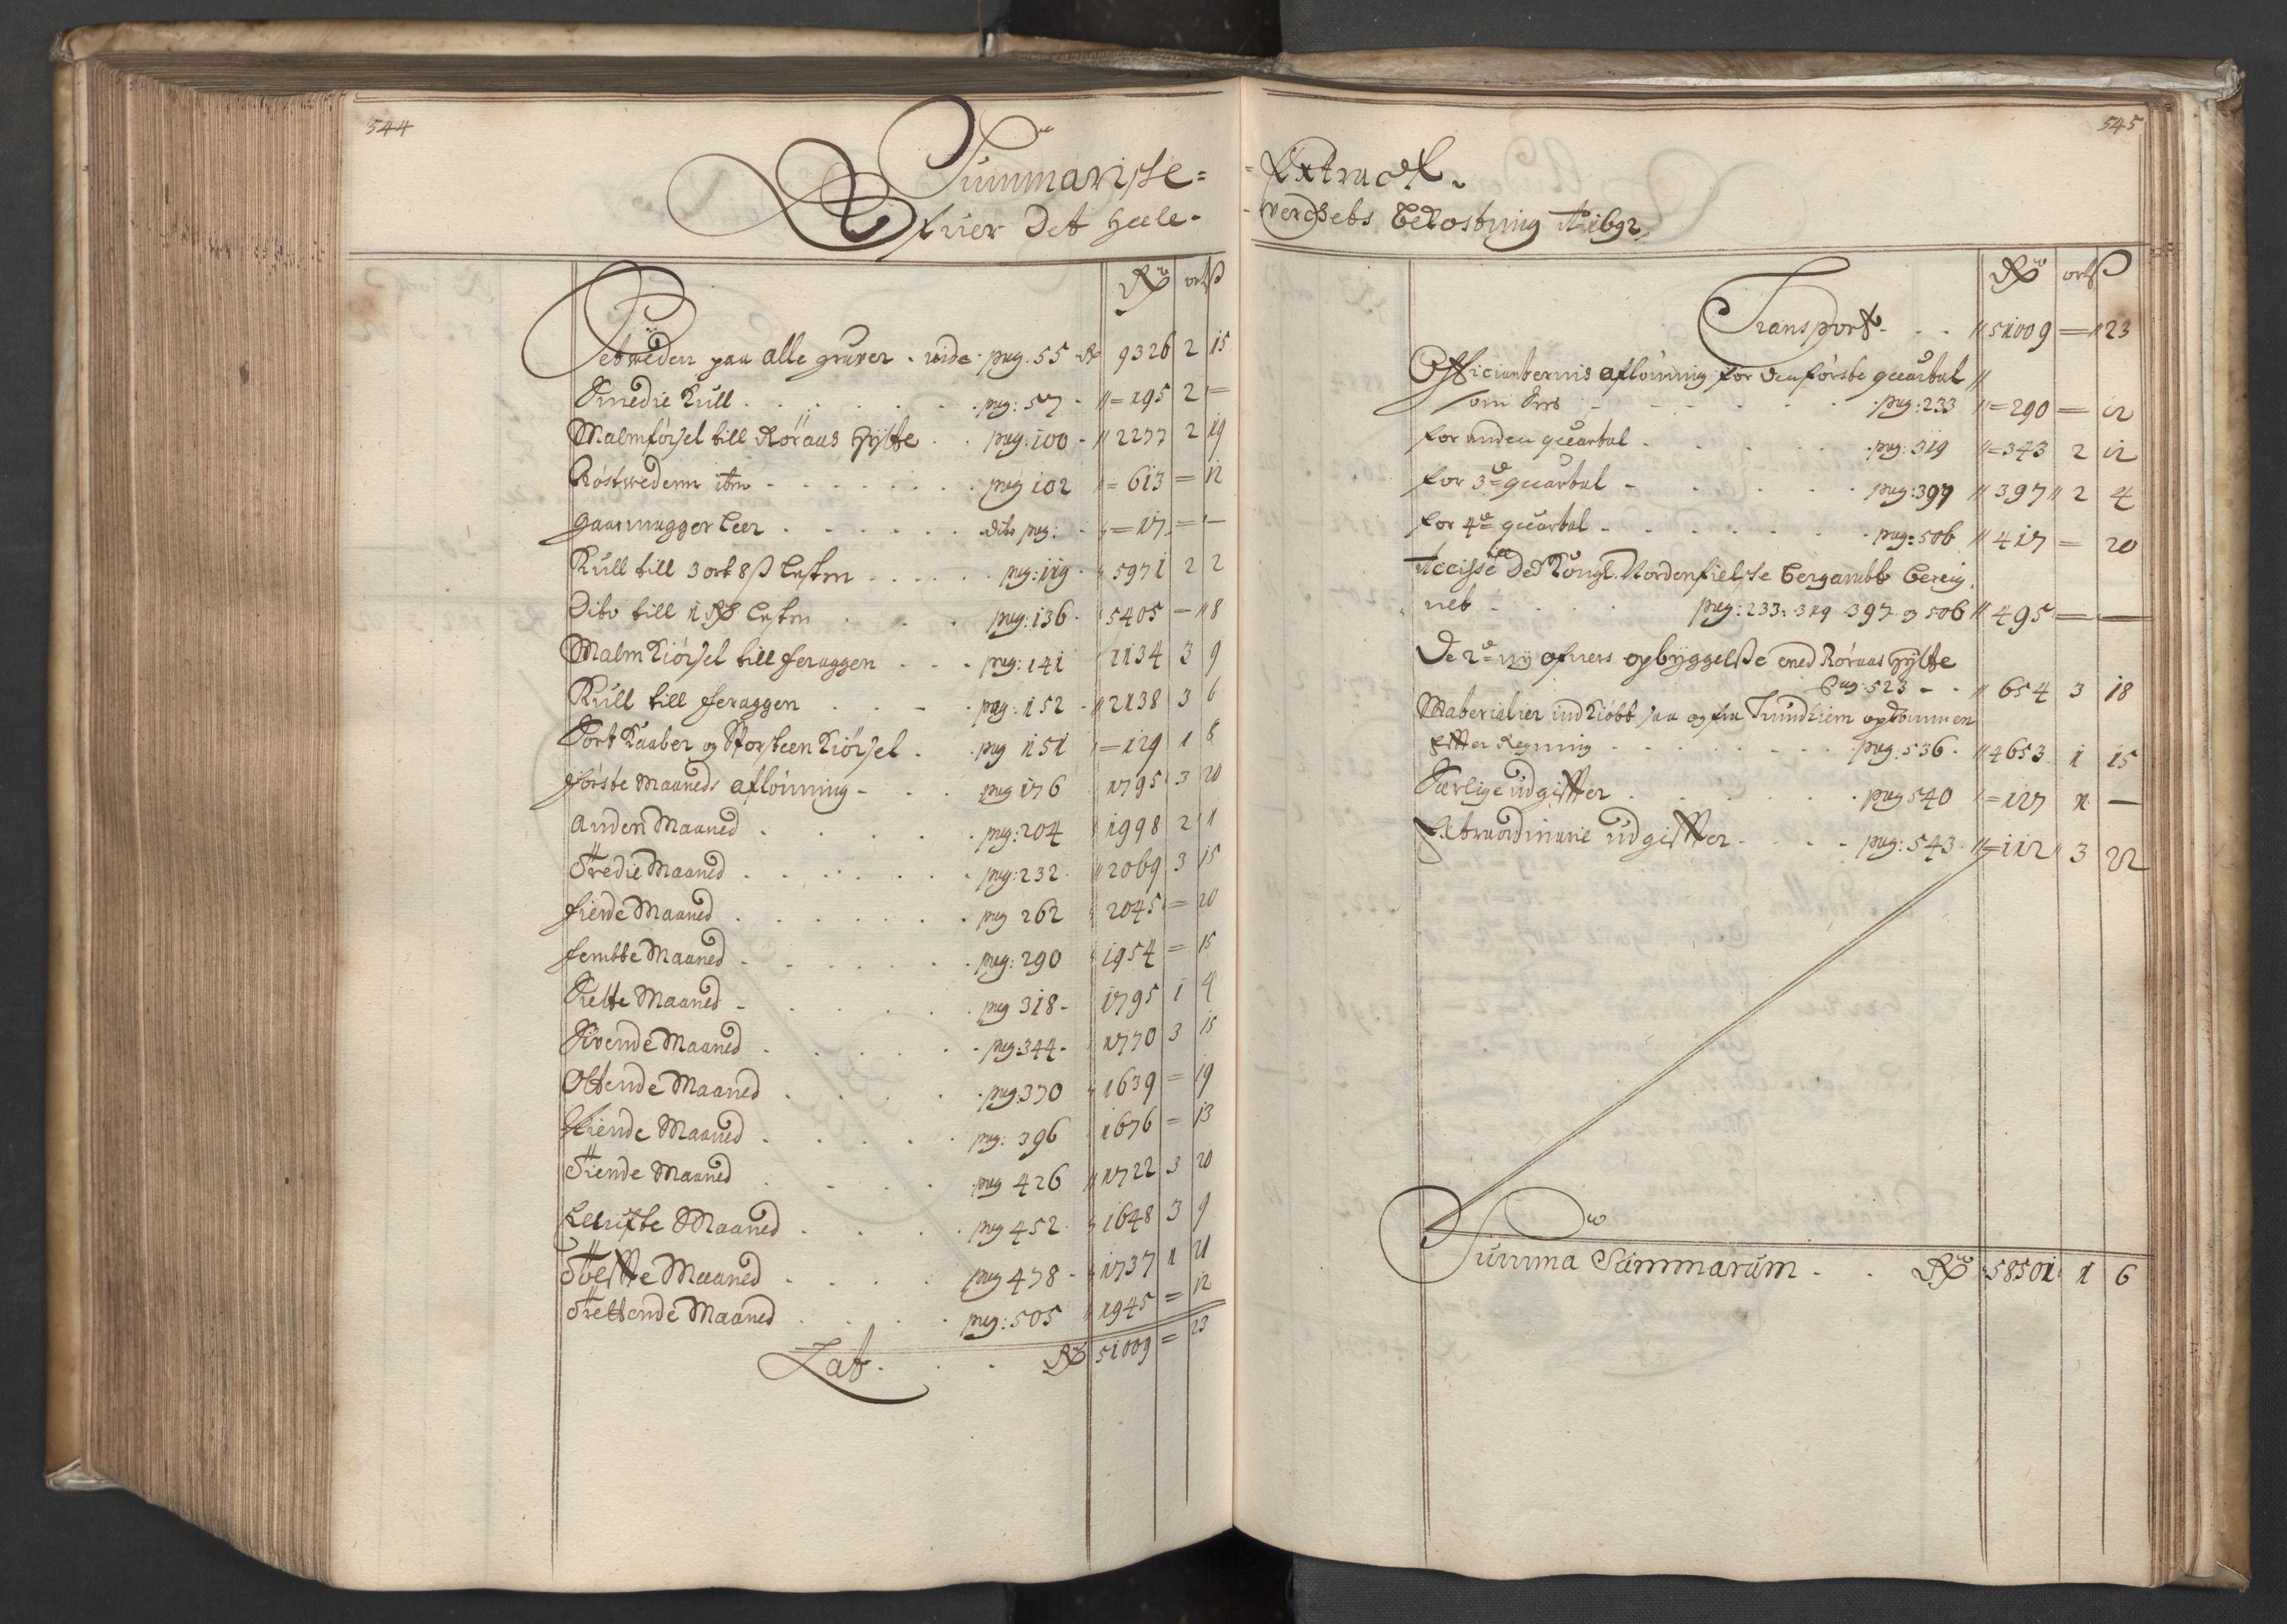 544
Summariske=
Ofuer Det heele-
Rdr ort ß
Setweden paa alle gruver. vide pag. 55 Rdr 9326 2 15
Smedie Kull . . . pag: 57 - "=195 2 -
Malmförsel till Röraas Hytte . . pag: 100 - " 2277 2 19
Röstwedenn itm - . . . pag 102 "= 613 = 12
gaarmager Leer . . . . dito pag: - "= 17. = -
Kull till 3 ort 8 ß Lesten . . . . pag: 119 - " 5971 2 2
Dito till 1 Rdr Lesten . . . pag: 136 - " 5405 - " 8
Malm Kiörsel till feraggen . . . pag: 141 1134 3 9
Kull till feraggen . . . pag: 152 - " 2138 3 6
Sort Kaaber og Storsteen Kiörsel . . pag 151 "=129 1 8
förste Maaneds aflönning - . . pag 176 1795 3 20
Anden Maaned . . . . pag: 204 " 1998 2 1
Tredie Maaned . . . . pag: 232. " 2069 3 15
fierde Maaned . . . . pag 262 " 2045 = 20
fembte Maaned - . . . pag: 290 " 1954 = 15
Siette Maaned - . . . pag 318 - 1795 1 4
Sivende Maaned . . . . pag: 344 - 1770 3 15
Ottende Maaned . . . . pag 370 " 1639 = 19
Niende Maaned . . . . pag: 396 1676 = 13
Tiende Maaned . . . . pag 426 " 1722 3 20
Ellufte Maaned . . . . pag 452. " 1648 3 9
Tolffte Maaned . . . . pag 478 - " 1737 1 21
Trettende Maaned . . . . pag: 505 " 1945 = 12
Lat. . . Rdr 51009 = 23
545
=Extract.
-Verchets Bekostning Ao 1692
Rdr ort ß
Transport - . . " 51009 = " 23
Officianternis aflönning for den förste quartal "
pag: 233 "= 290 = 12
for anden quartal - . . . pag: 319 "= 343 2 12
for 3de quartal - . . . pag: 397 " 397 " 2 4
for 4de quartal - . . . pag: 506 " 417 = 20
Accisse till Ded Kongl. Nordenfielske bergambt bereig-
net - . . . pag: 233: 319 397 og 506 " 495 = -
De 2de ny ofuers opbyggelsse ved Röraas Hytte
Pag: 523 - - " 654 3 18
Materialier ind Kiöbt saa og fra Trundhiem opkommen
Effter Regning . . . . pag. 536 - " 4653 1 15
Særlige udgiffter . . . . pag 540 "= 127 1 -
Extraordinarie udgiffter . . . - pag: 543. "= 112 " 3 22
Summa Summarum - . Rdr 58501 1 6